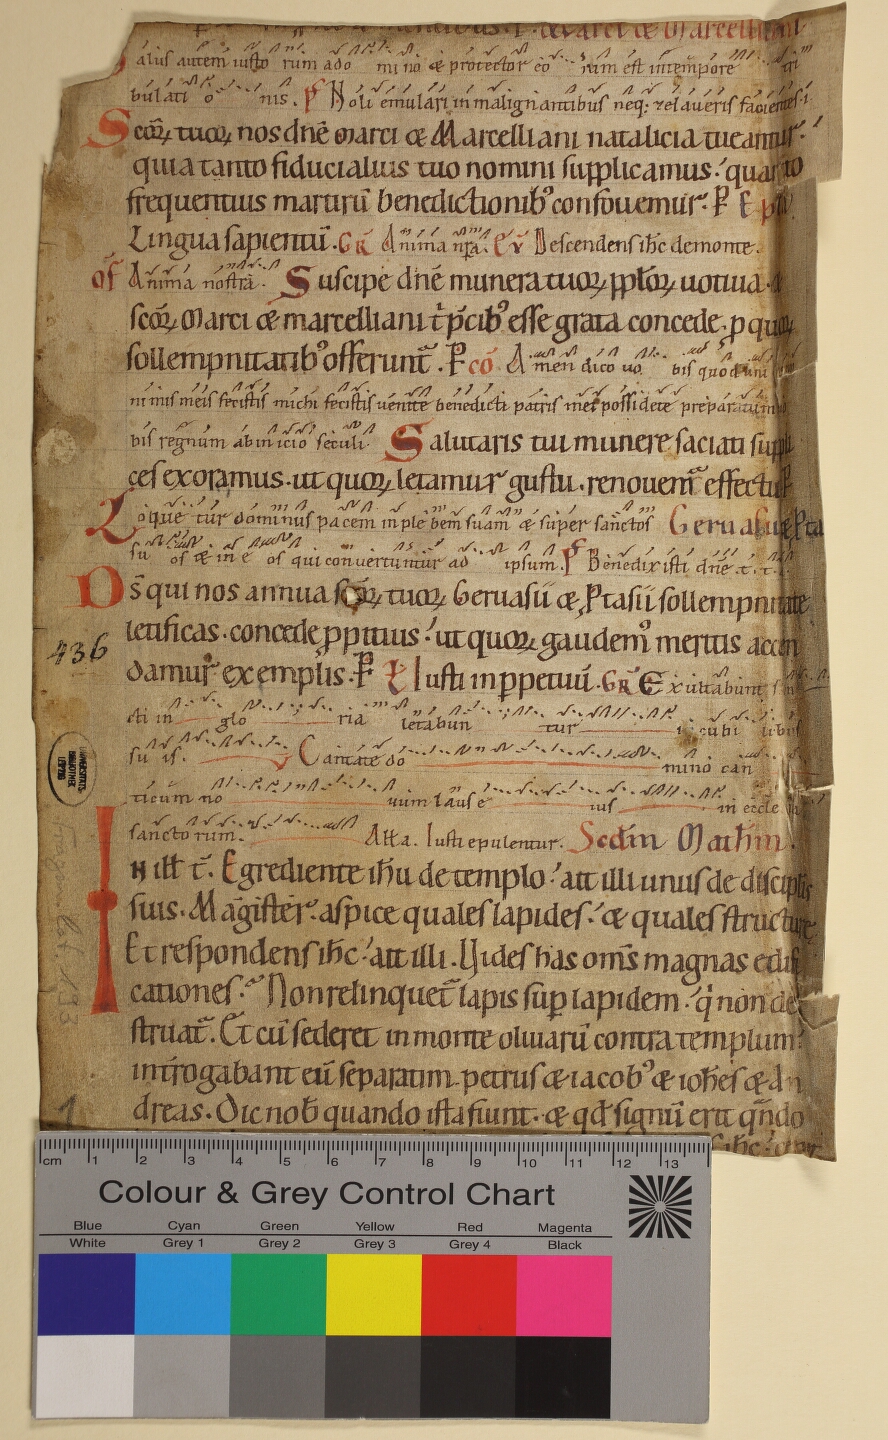 Marci & Marcelliani
alus autem iusto rum a do mi no & protector eo rum est in tempore tri
bulati o nis. Ps Noli emulari in malignantibus neq; zelaveris facientes i
Scōꝝ tuoꝝ nos dn̄e marci & Marcelliani natalicia tueantur.
quia tanto fiducialius tuo nomini supplicamus. quanto
frequentius martirū benedictionibꝰ confovemur. P
Lingua sapientū. GR Anima nr̄a. Ev Descendens ih̄c de monte.
of Anima nostra. Suscipe dn̄e munera tuoꝝ pplōꝝ votiva
scōꝝ Marci & marcelliani t̄ p̄cibꝰ esse grata concede. p quoꝝ
sollempnitatibꝰ offerunt̄. P cō Amen dico vo bis quod uni
ni mis meis fecistis michi fecistis venite benedicti patris mei possidete preparatum
bis regnum ab inicio seculi. Salutaris tui munere saciati suppli
ces exoramus. ut quoꝝ letamur gustu. renovem̄ effectu.
Loque tur dominus pacem in ple bem suam & super sanctos Gervasii & Pta
su os & in e os qui convertuntur ad ipsum. Ps Benedixisti dn̄e t. t.
Ds̄ qui nos annua scōꝝ tuoꝝ Gervasii & Ptasii sollempnitate
letificas. concede ppitius. ut quoꝝ gaudemꝰ meritis accen
damur exemplis. P Iusti in ppetuū. GR Exultabunt san
cti in glo ria letabun tur in cubi libus
su is. V Cantate do mino can
ticum no vum laus e ius in eccle
sanctorum. All̄a. Iusti epulentur. Scd̄m Math̄m.
In ill̄ t̄. Egrediente ih̄u de templo. ait illi unus de discipulis
suis. Magister. aspice quales lapides. & quales structure
Et respondens ih̄c. ait illi. Vides has om̄s magnas edifi
cationes. Non relinquet̄ lapis sup lapidem. q̄ non de
struat̄. Et cū sederet in monte olivarū contra templum.
int̄rogabant eū separatim. petrus & iacobꝰ & ioh̄es & An
dreas. Dic nob̄ quando ista fiunt. & qd̄ signū erit qn̄do
436
UNIVERSITÄTS BIBLIOTHEK LEIPZIG
Fragm. lat. 133
1
cm 1 2 3 4 5 6 7 8 9 10 11 12 13
Colour & Grey Control Chart
Blue Cyan Green Yellow Red Magenta
White Grey 1 Grey 2 Grey 3 Grey 4 Black